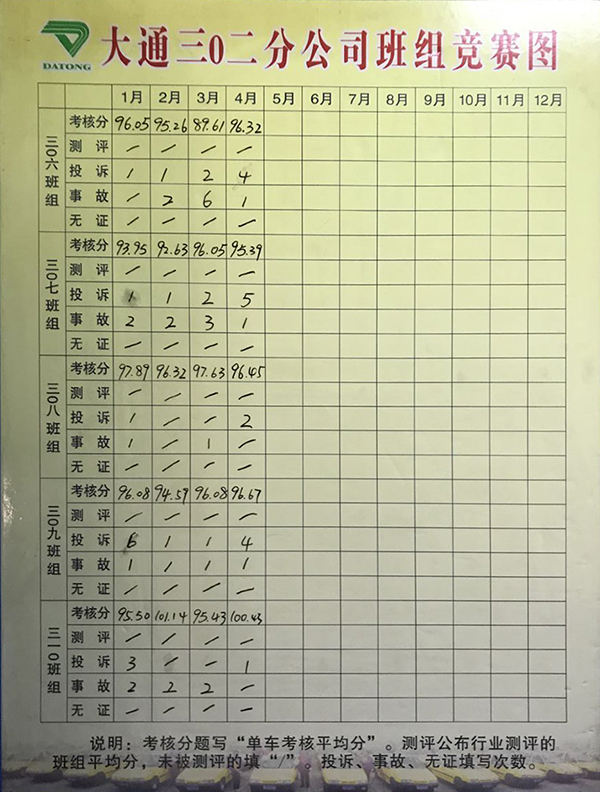 DATONG 大通三0二分公司班组竞赛图
1月 2月 3月 4月 5月 6月 7月 8月 9月 10月 11月 12月
三〇六班组
考核分 96.05 95.26 89.61 96.32
测评 / / / /
投诉 1 1 2 4
事故 / 2 6 1
无证 / / / /
三〇七班组
考核分 93.95 92.63 96.05 95.39
测评 / / / /
投诉 1 1 2 5
事故 2 2 3 1
无证 / / / /
三〇八班组
考核分 97.89 96.32 97.63 96.45
测评 / / / /
投诉 1 / / 2
事故 1 / 1 /
无证 / / / /
三〇九班组
考核分 96.08 94.59 96.08 96.67
测评 / / / /
投诉 6 1 1 4
事故 1 1 1 1
无证 / / / /
三一〇班组
考核分 95.50 101.14 95.43 100.43
测评 / / / /
投诉 3 / / 1
事故 2 2 2 /
无证 / / / /
说明：考核分题写“单车考核平均分”。测评公布行业测评的
班组平均分，未被测评的填“/”。投诉、事故、无证填写次数。